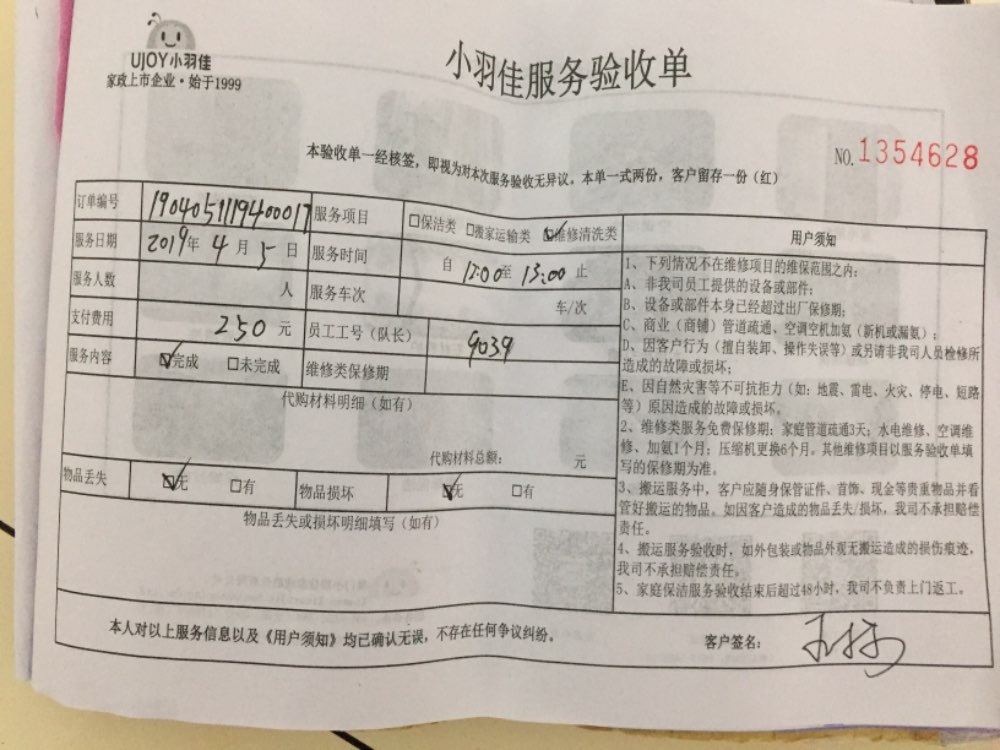 UJOY小羽佳
家政上市企业·始于1999
小羽佳服务验收单
本验收单一经核签，即视为对本次服务验收无异议。本单一式两份，客户留存一份（红）
NO.1354628
订单编号 1904051119400017 服务项目 □保洁类 □搬家运输类 ☑维修清洗类
服务日期 2019年 4 月 5 日 服务时间 自 12:00 至 13:00 止
服务人数 人 服务车次 车/次
支付费用 250 元 员工工号（队长） 9039
服务内容 ☑完成 □未完成 维修类保修期
代购材料明细（如有）
代购材料总额： 元
物品丢失 ☑无 □有 物品损坏 ☑无 □有
物品丢失或损坏明细填写（如有）
用户须知
1、下列情况不在维修项目的维保范围之内：
A、非我司员工提供的设备或部件；
B、设备或部件本身已经超过出厂保修期；
C、商业（商铺）管道疏通、空调空机加氨（新机或漏氨）；
D、因客户行为（擅自装卸、操作失误等）或另请非我司人员检修所
造成的故障或损坏；
E、因自然灾害等不可抗拒力（如：地震、雷电、火灾、停电、短路
等）原因造成的故障或损坏。
2、维修类服务免费保修期：家庭管道疏通3天；水电维修、空调维
修、加氨1个月；压缩机更换6个月。其他维修项目以服务验收单填
写的保修期为准。
3、搬运服务中，客户应随身保管证件、首饰、现金等贵重物品并看
管好搬运的物品。如因客户造成的物品丢失/损坏，我司不承担赔偿
责任。
4、搬运服务验收时，如外包装或物品外观无搬运造成的损伤痕迹，
我司不承担赔偿责任。
5、家庭保洁服务验收结束后超过48小时，我司不负责上门返工。
本人对以上服务信息以及《用户须知》均已确认无误，不存在任何争议纠纷。 客户签名：